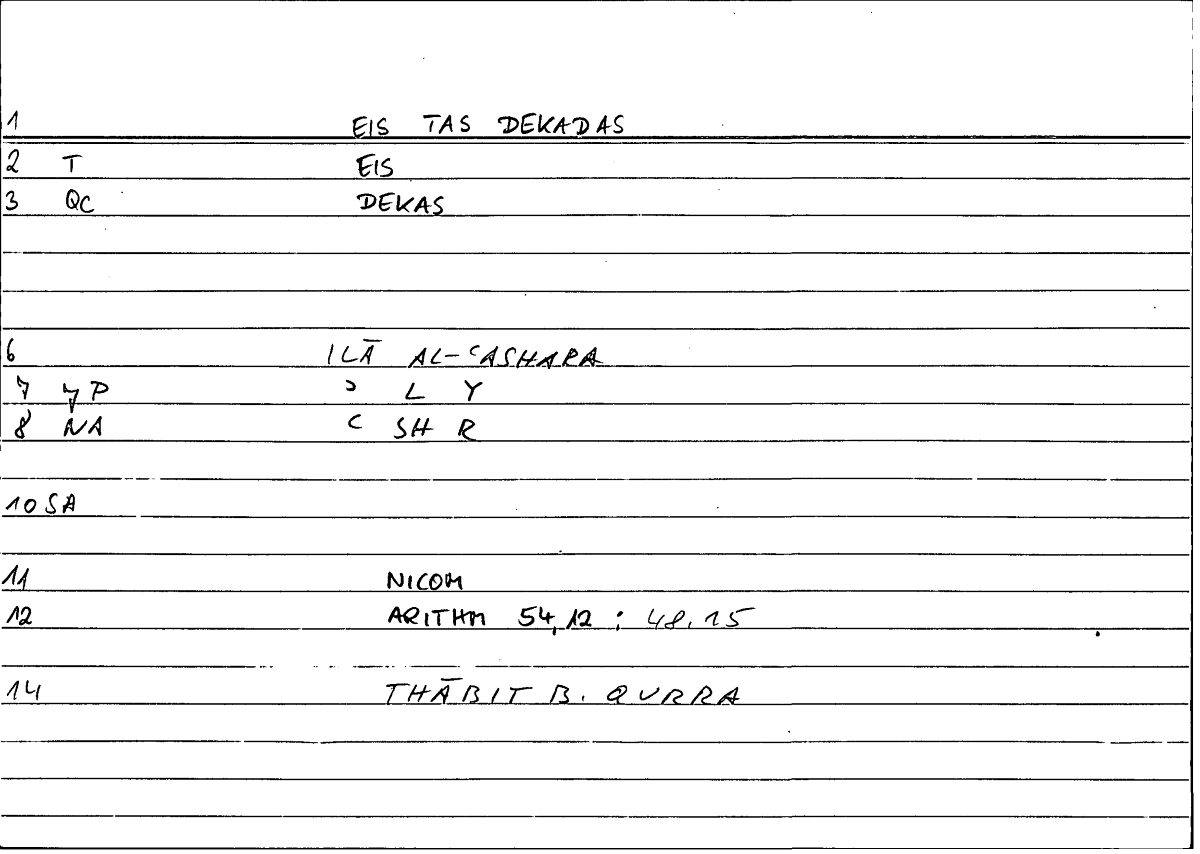 1 EIS TAS DEKADAS
2 T EIS
3 QC DEKAS
6 ILĀ AL-ʿASHARA
7 yP ʾ L Y
8 NA ʿ SH R
10 SA
11 NICOM
12 ARITHM 54,12 : 48,15
14 THĀBIT B. QURRA